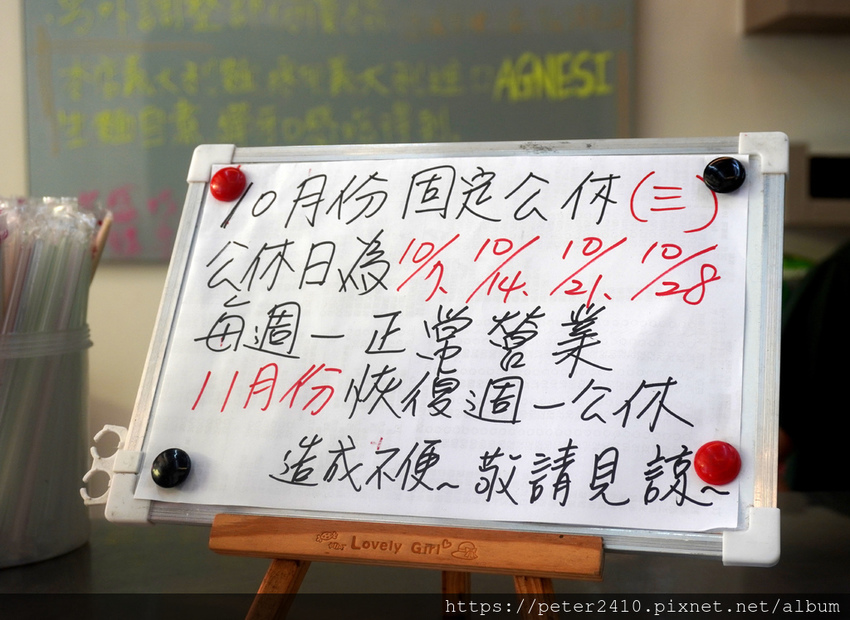 AGNESI
10月份固定公休(三)
公休日為10/7、10/14、10/21、10/28
每週一正常營業
11月份恢復週一公休
造成不便~敬請見諒~
Lovely Girl
https://peter2410.pixnet.net/album